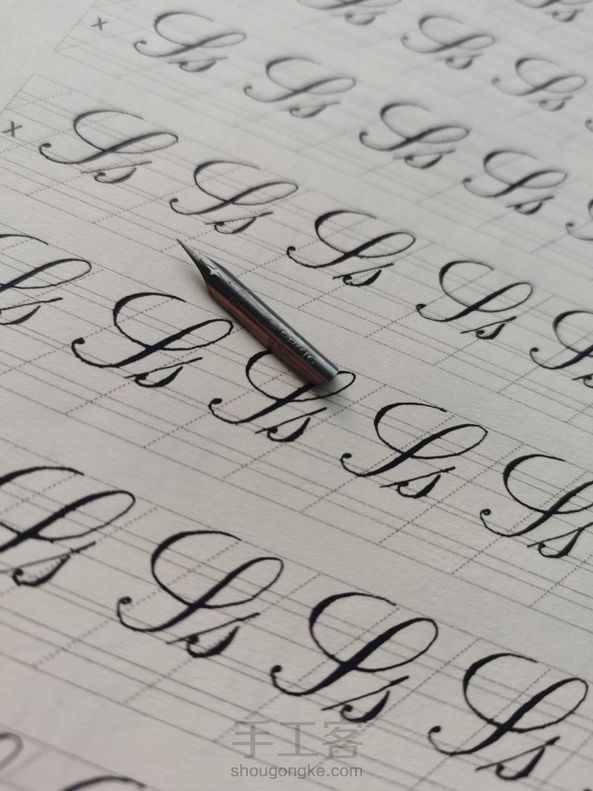 Ss Ss Ss
x Ss Ss Ss Ss
x Ss Ss Ss Ss Ss
Ss Ss Ss Ss Ss
Ss Ss Ss Ss
手工客
shougongke.com